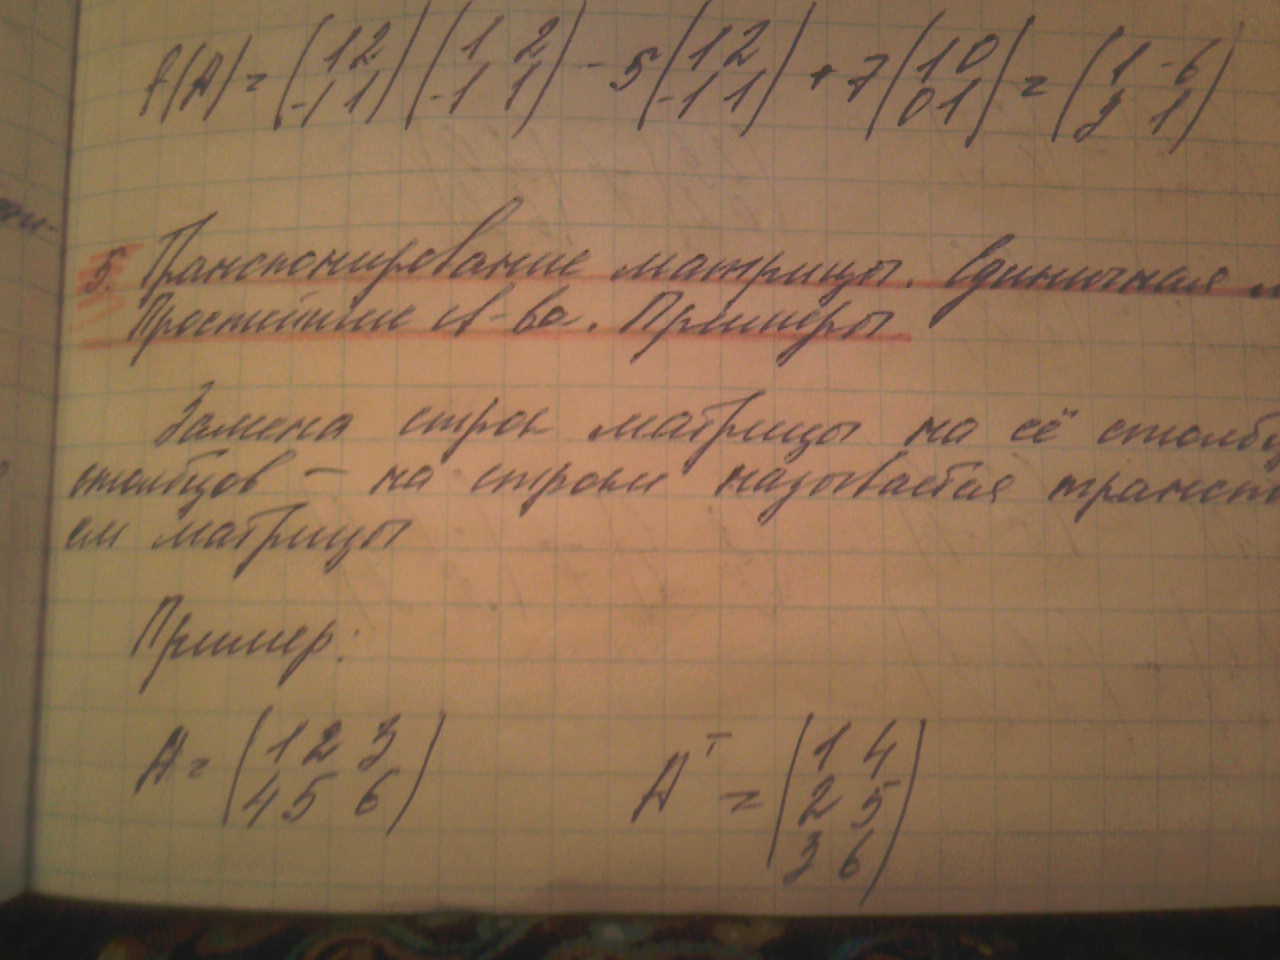 f(A) = (1 2 / -1 1) (1 2 / -1 1) - 5 (1 2 / -1 1) + 7 (1 0 / 0 1) = (1 -6 / 3 1)
5. Транспонирование матрицы. Единичная м
Простейшие св-ва. Примеры
Замена строк матрицы на её столбц
столбцов – на строки называется трансп
ем матрицы
Пример:
A = (1 2 3 / 4 5 6) Aᵀ = (1 4 / 2 5 / 3 6)